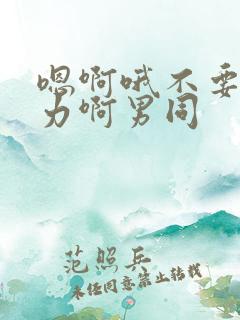 嗯啊哦不要
力啊男同
范照兵
未经同意禁止转载